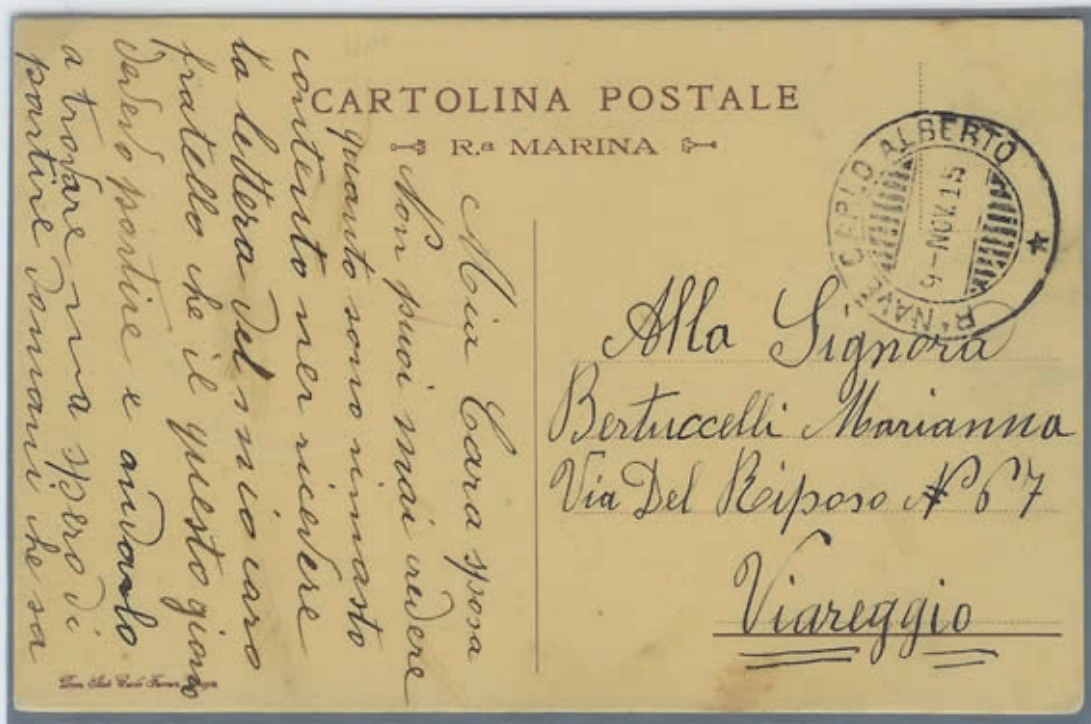 CARTOLINA POSTALE
R.a MARINA
Ra NAVE CARLO ALBERTO
9-NOV.15
Alla Signora
Bertuccelli Marianna
Via Del Riposo N 67
Viareggio
Mia Cara sposa
Non puoi mai credere
quanto sono rimasto
contento per ricevere
la lettera del mio caro
fratello che il questo giorno
dovevo partire e
a trovare ma spero di
partire domani che sa